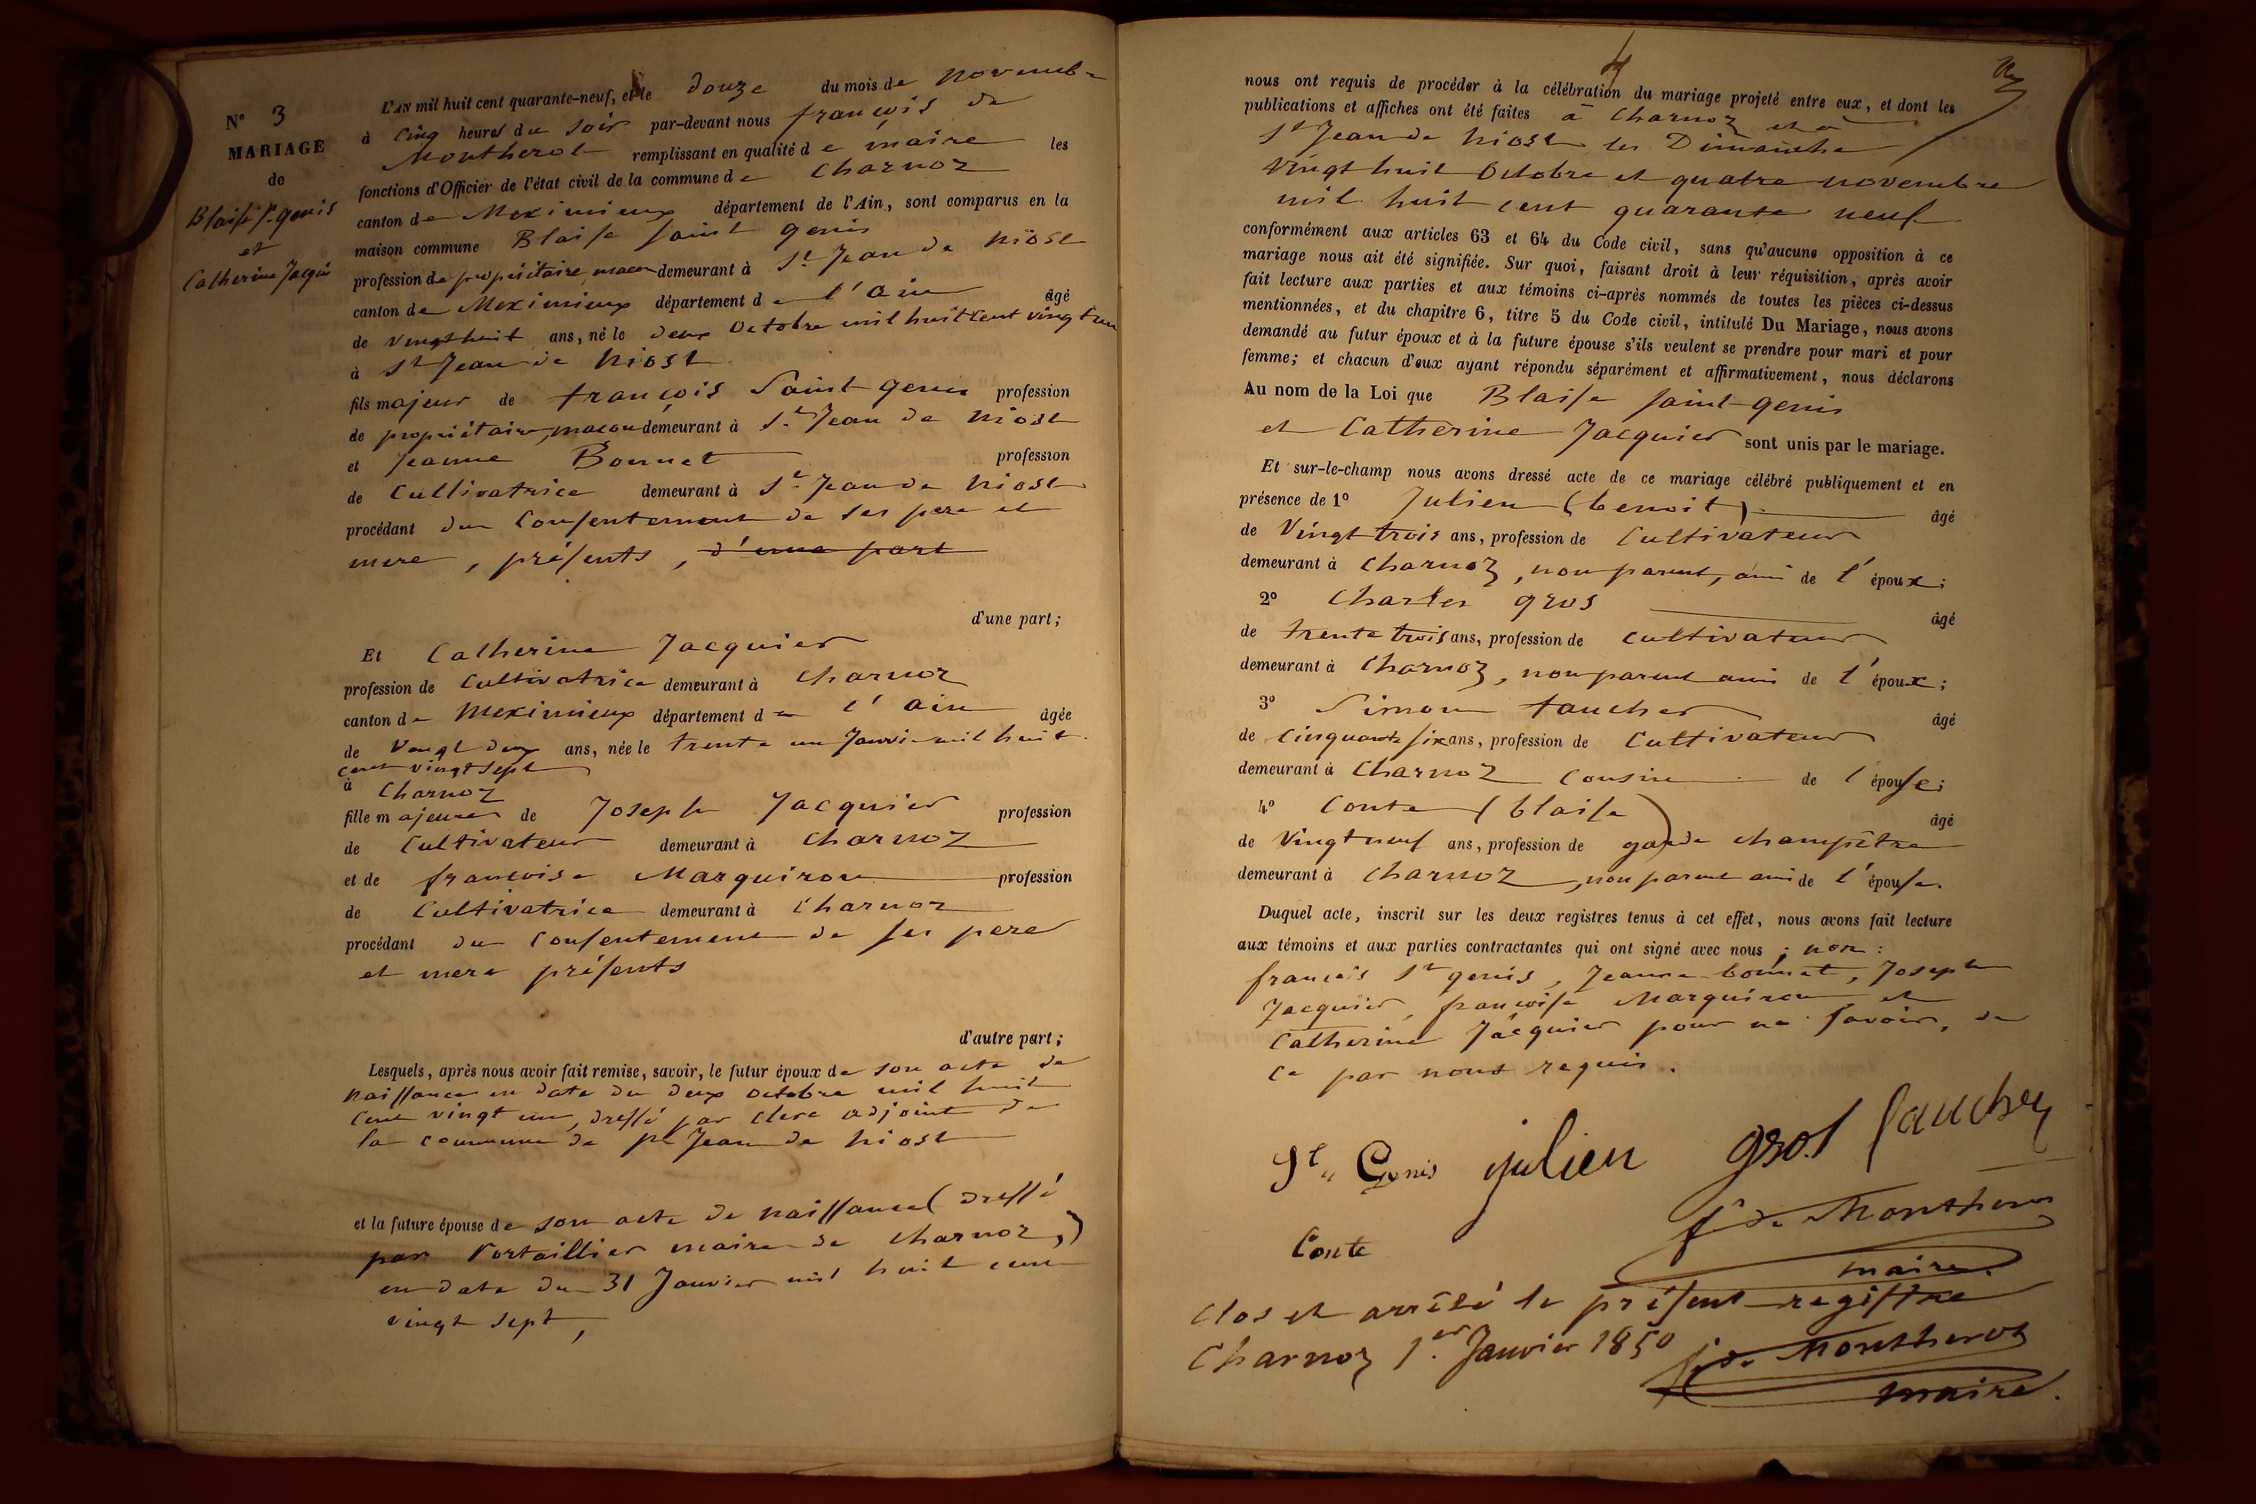 N° 3
MARIAGE
de
Blaise St genis
et
Catherine Jacquier
L'AN mil huit cent quarante-neuf, et le douze du mois de novembre
à cinq heures du soir par-devant nous françois de
Montherot remplissant en qualité de maire les
fonctions d'Officier de l'état civil de la commune de Charnoz
canton de Meximieux département de l'Ain, sont comparus en la
maison commune Blaise Saint genis
profession de propriétaire, maçon demeurant à St Jean de Niost
canton de Meximieux département de l'ain âgé
de vingt huit ans, né le deux Octobre mil huit cent vingt un
à St Jean de Niost
fils majeur de françois Saint genis profession
de propriétaire, maçon demeurant à St Jean de Niost
et Jeanne Bonnet profession
de Cultivatrice demeurant à St Jean de Niost
procédant du Consentement de ses pere et
mere, présents, d'une part
d'une part;
Et Catherine Jacquier
profession de Cultivatrice demeurant à Charnoz
canton de Meximieux département de l'ain âgée
de Vingt deux ans, née le trente un Janvier mil huit
cent vingt sept
à Charnoz
fille majeure de Joseph Jacquier profession
de Cultivateur demeurant à Charnoz
et de françoise Marguiron profession
de Cultivatrice demeurant à Charnoz
procédant du Consentement de ses pere
et mere présents
d'autre part;
Lesquels, après nous avoir fait remise, savoir, le futur époux de son acte de
naissance en date du deux octobre mil huit
cent vingt un, dressé par Clerc adjoint de
la commune de St Jean de Niost
et la future épouse de son acte de naissance (dressé
par Portaillier maire de Charnoz,)
en date du 31 Janvier mil huit cent
vingt sept,
4
nous ont requis de procéder à la célébration du mariage projeté entre eux, et dont les
publications et affiches ont été faites à Charnoz et à
St Jean de Niost les Dimanche
vingt huit Octobre et quatre novembre
mil huit cent quarante neuf
conformément aux articles 63 et 64 du Code civil, sans qu'aucune opposition à ce
mariage nous ait été signifiée. Sur quoi, faisant droit à leur réquisition, après avoir
fait lecture aux parties et aux témoins ci-après nommés de toutes les pièces ci-dessus
mentionnées, et du chapitre 6, titre 5 du Code civil, intitulé Du Mariage, nous avons
demandé au futur époux et à la future épouse s'ils veulent se prendre pour mari et pour
femme; et chacun d'eux ayant répondu séparément et affirmativement, nous déclarons
Au nom de la Loi que Blaise Saint-genis
et Catherine Jacquier sont unis par le mariage.
Et sur-le-champ nous avons dressé acte de ce mariage célébré publiquement et en
présence de 1° Julien (benoit) âgé
de Vingt trois ans, profession de Cultivateur
demeurant à Charnoz, non parent, ami de l'époux;
2° Charles gros âgé
de trente trois ans, profession de cultivateur
demeurant à Charnoz, non parent ami de l'époux;
3° Simon faucher âgé
de Cinquante six ans, profession de Cultivateur
demeurant à Charnoz Cousin de l'épouse;
4° Conte (blaise) âgé
de Vingt neuf ans, profession de garde champêtre
demeurant à Charnoz, non parent ami de l'épouse.
Duquel acte, inscrit sur les deux registres tenus à cet effet, nous avons fait lecture
aux témoins et aux parties contractantes qui ont signé avec nous; non:
françois St genis, Jeanne bonnet, Joseph
Jacquier, françoise Marguiron et
Catherine Jacquier pour ne savoir, de
ce par nous requis.
St Genis julien gros faucher
f. de Montherot
Conte
maire.
Clos et arrêté le présent registre
Charnoz 1er Janvier 1850 f. de Montherot
maire.